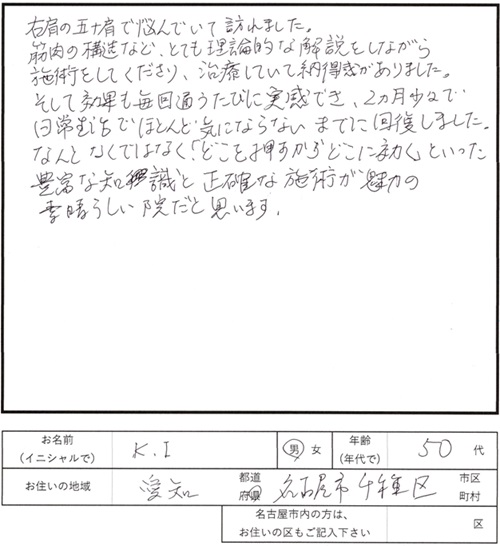 右肩の五十肩で悩んでいて訪れました。
筋肉の構造など、とても理論的な解説をしながら
施術をしてくださり、治療していて納得感がありました。
そして効果も毎回通うたびに実感でき、2ヵ月少々で
日常生活でほとんど気にならないまでに回復しました。
なんとなくではなく「どこを押すからどこに効く」といった
豊富な知識と正確な施術が魅力の
素晴らしい院だと思います。
お名前
(イニシャルで)
K.I
男 女
年齢
(年代で)
50 代
お住いの地域
愛知
都道
府県
名古屋市千種区
市区
町村
名古屋市内の方は、
お住いの区もご記入下さい
区